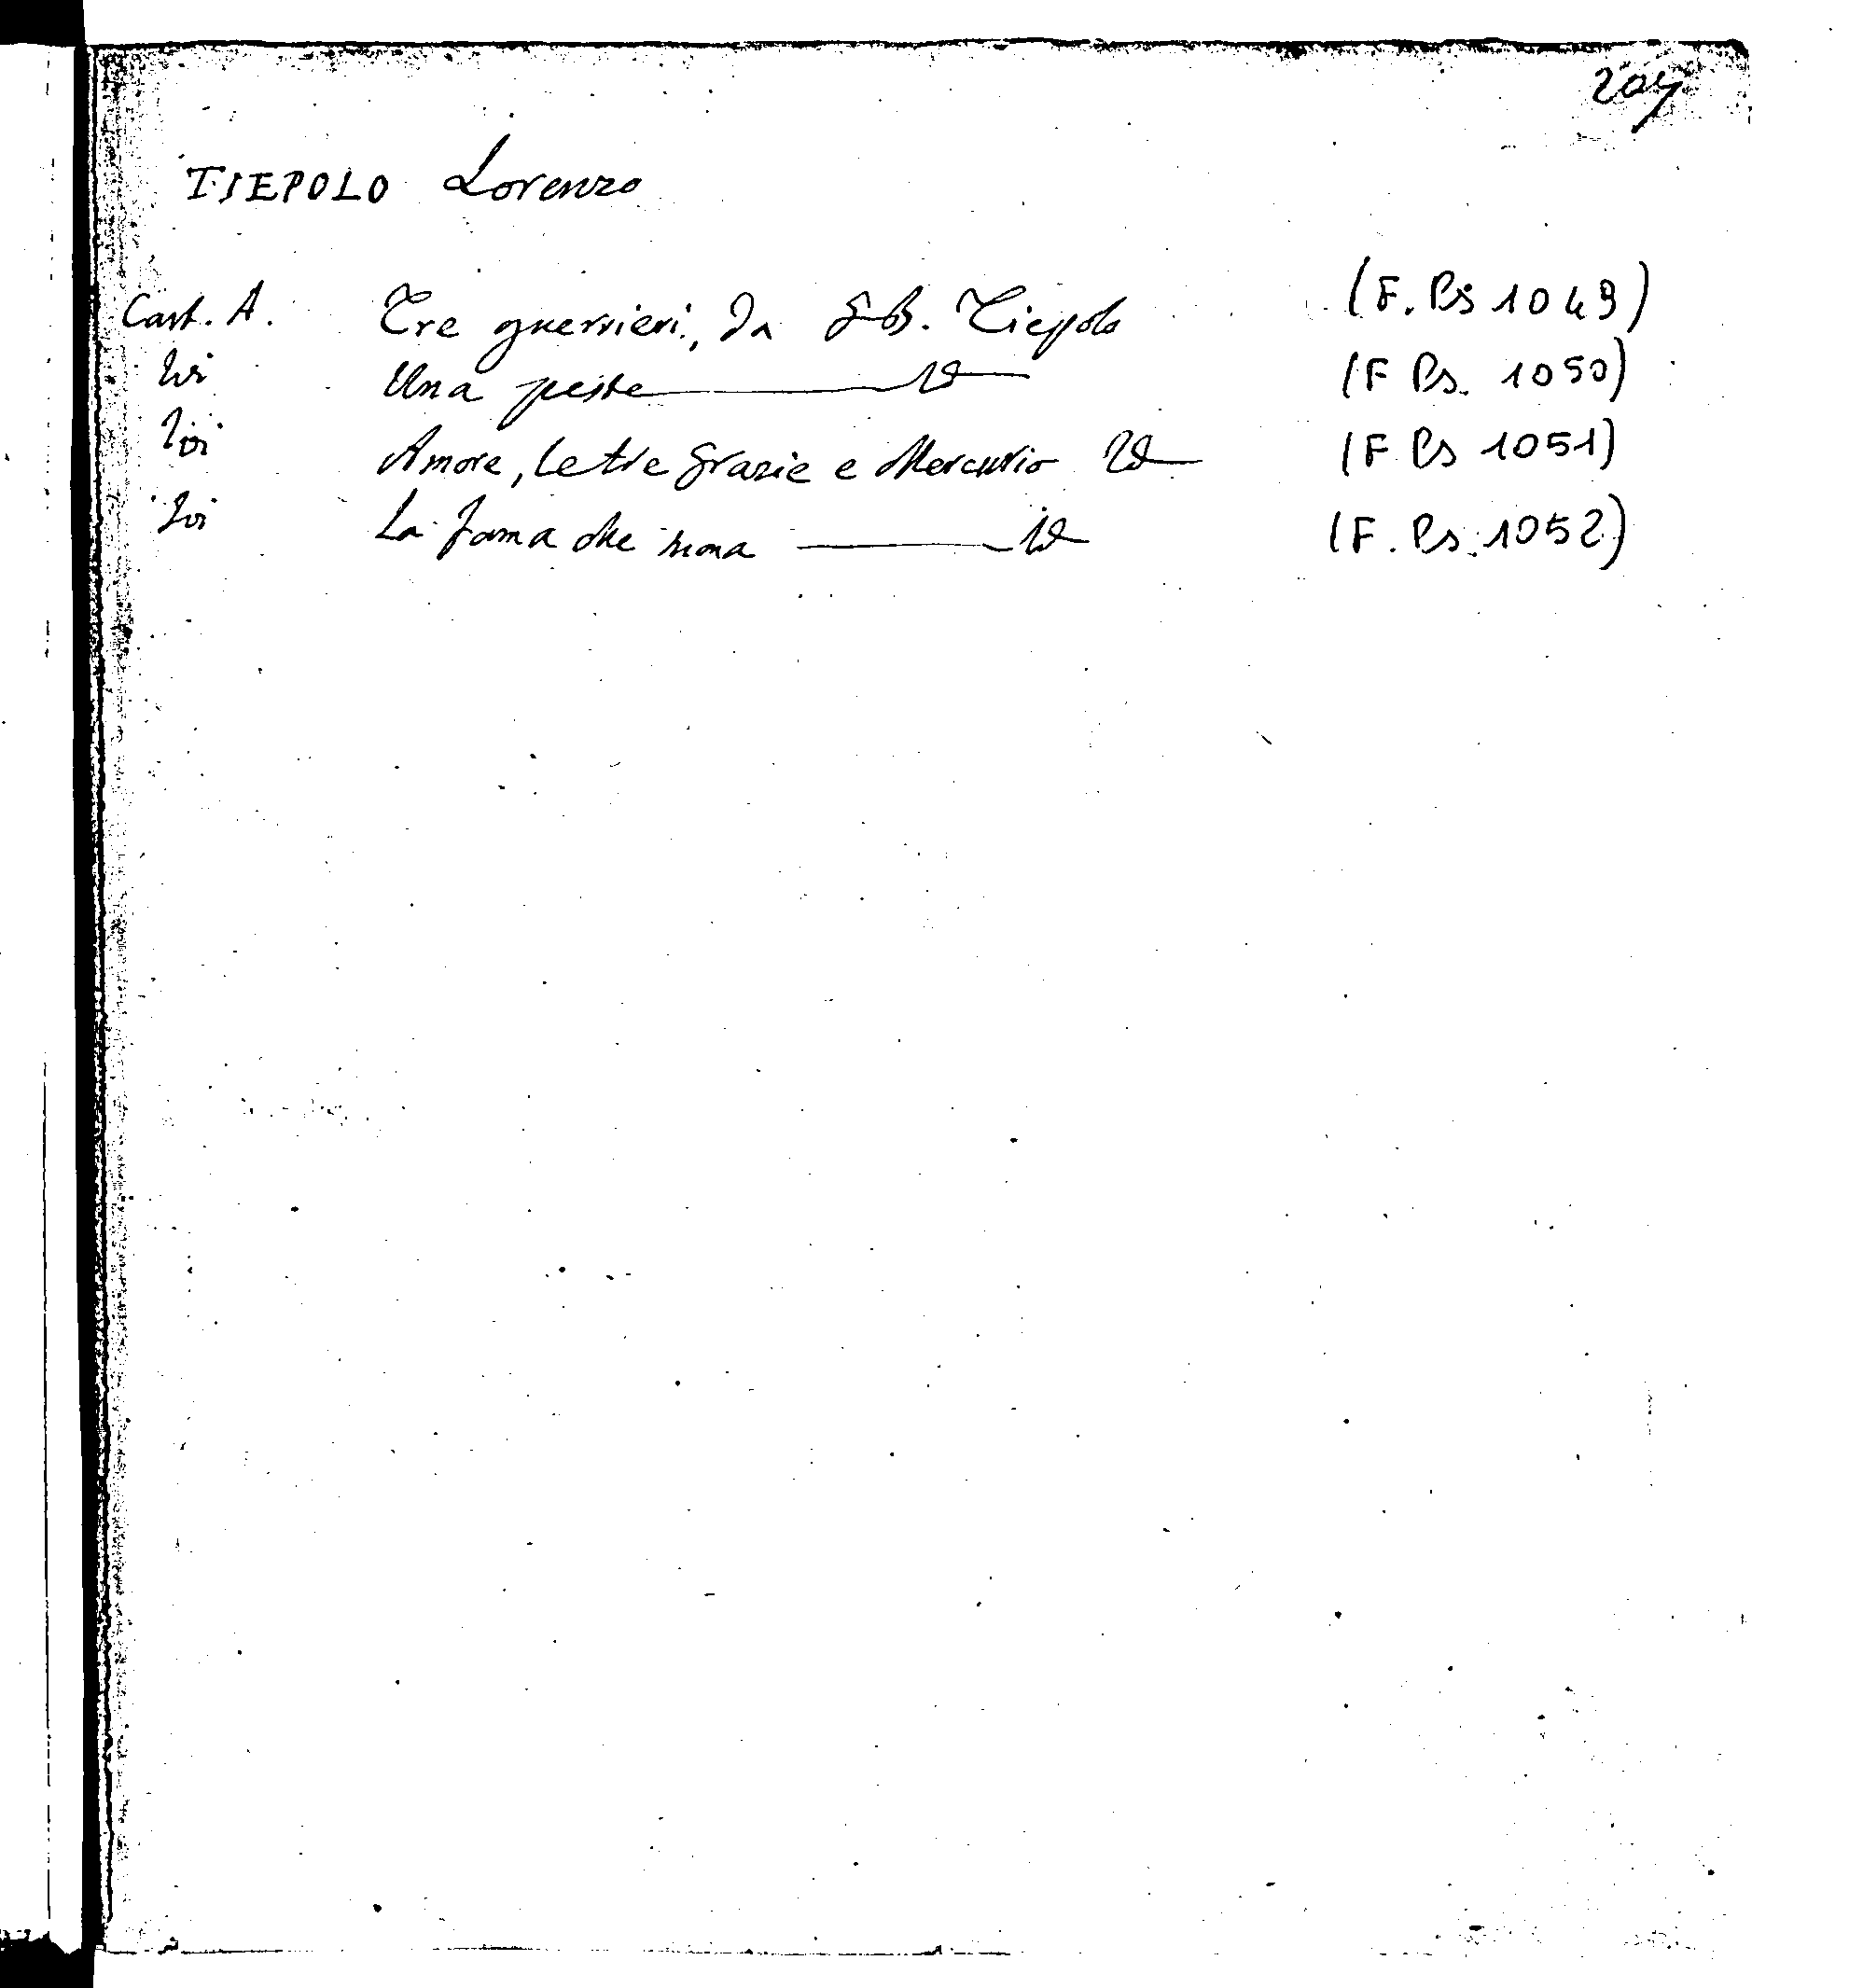 207
TIEPOLO Lorenzo
Cart. A. Tre guerrieri, da G.B. Tiepolo (F. Ps 1049)
Ivi Una peste Id (F Ps. 1050)
Ivi Amore, le tre grazie e Mercurio Id (F. Ps 1051)
Ivi La fama che suona Id (F. Ps. 1052)